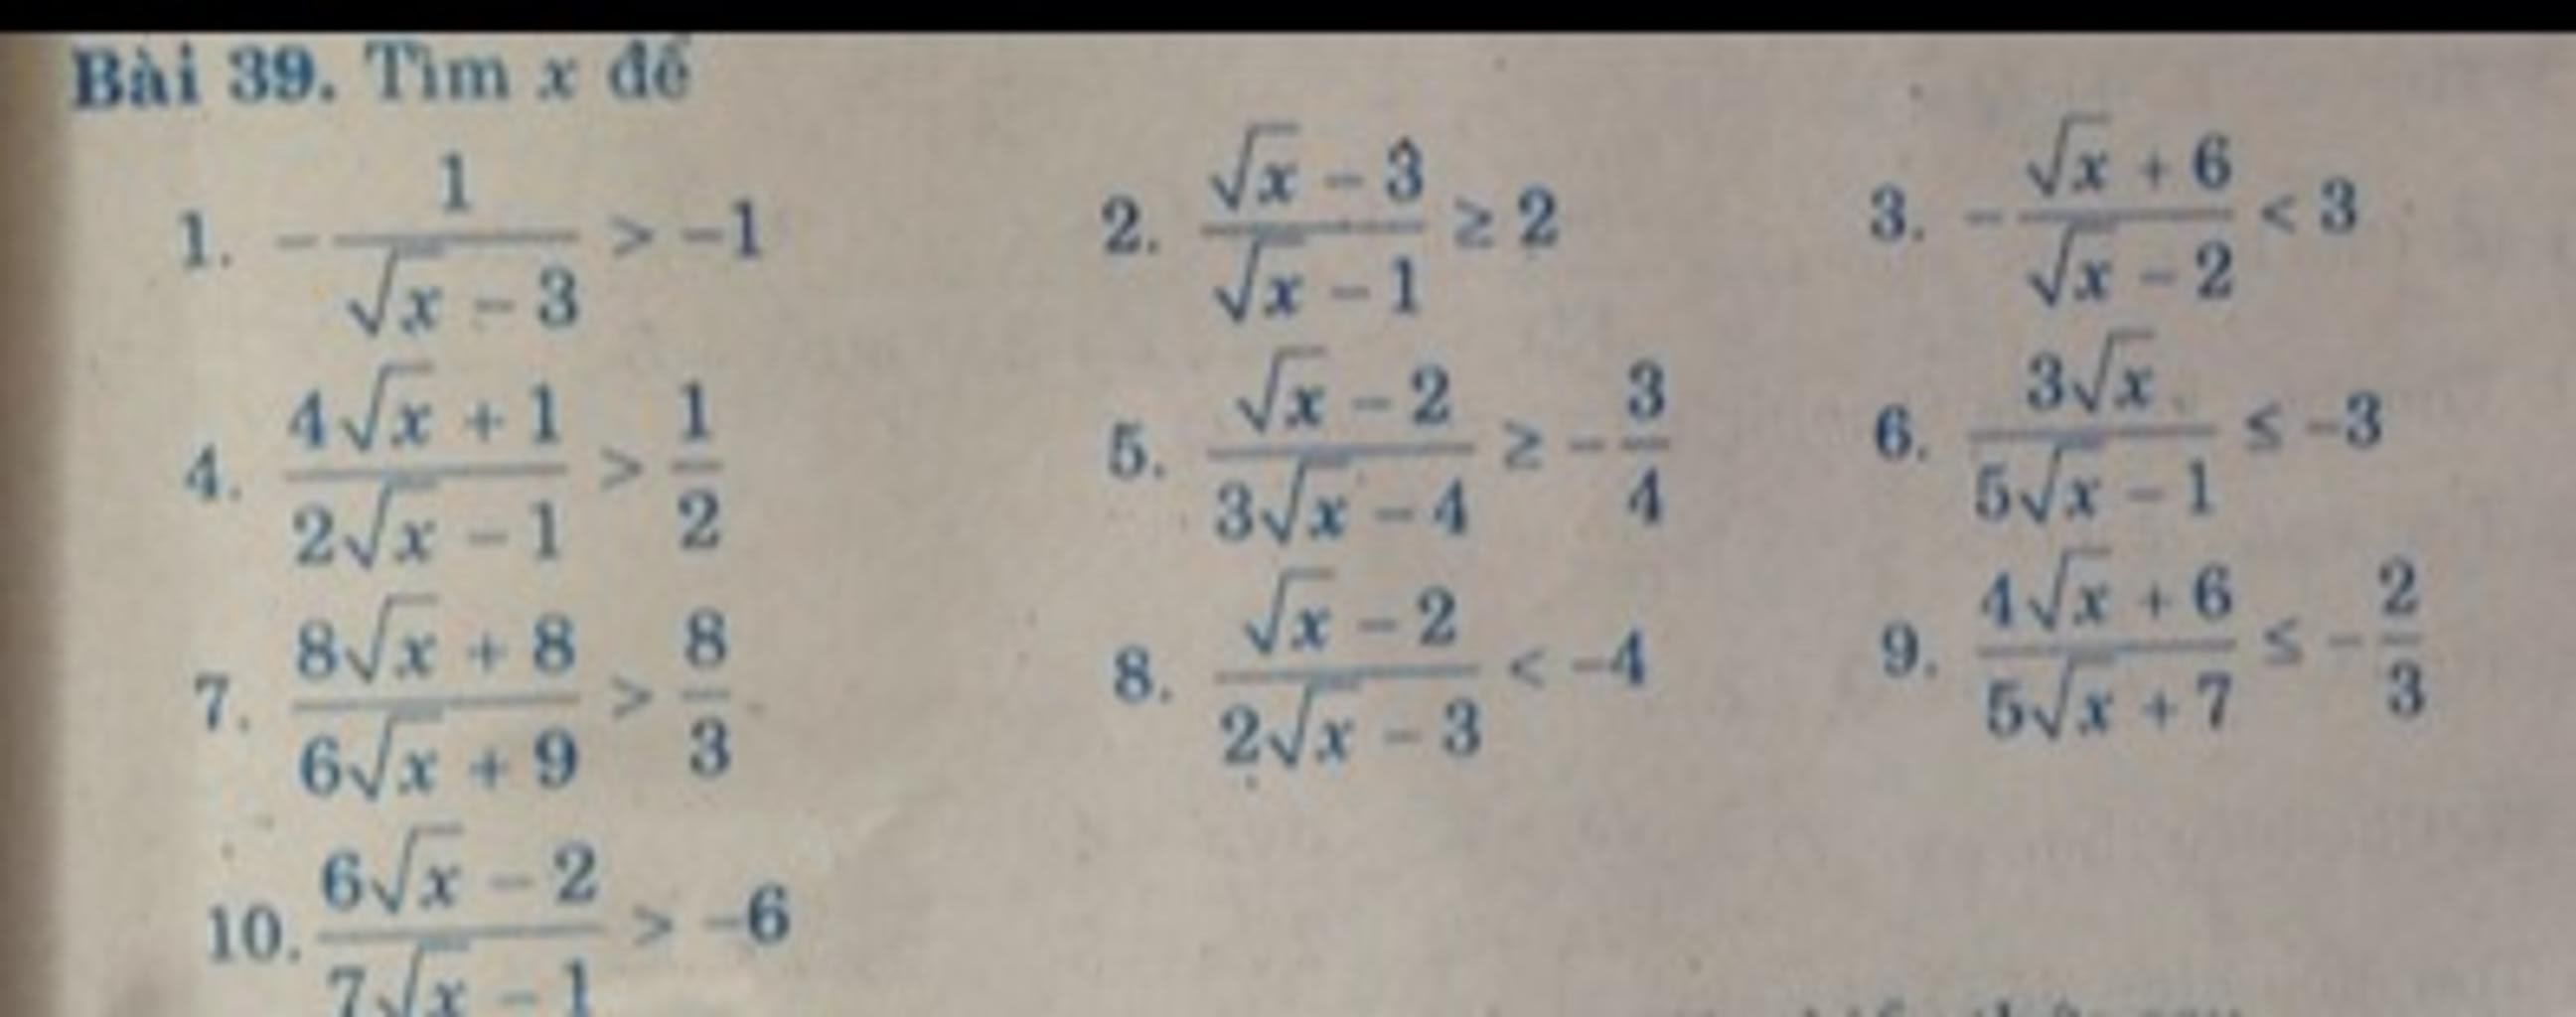 Bài 39. Tìm x để
1. -\frac{1}{\sqrt{x} - 3} > -1
2. \frac{\sqrt{x} - 3}{\sqrt{x} - 1} ≥ 2
3. -\frac{\sqrt{x} + 6}{\sqrt{x} - 2} < 3
4. \frac{4\sqrt{x} + 1}{2\sqrt{x} - 1} > \frac{1}{2}
5. \frac{\sqrt{x} - 2}{3\sqrt{x} - 4} ≥ -\frac{3}{4}
6. \frac{3\sqrt{x}}{5\sqrt{x} - 1} ≤ -3
7. \frac{8\sqrt{x} + 8}{6\sqrt{x} + 9} > \frac{8}{3}
8. \frac{\sqrt{x} - 2}{2\sqrt{x} - 3} < -4
9. \frac{4\sqrt{x} + 6}{5\sqrt{x} + 7} ≤ -\frac{2}{3}
10. \frac{6\sqrt{x} - 2}{7\sqrt{x} - 1} > -6